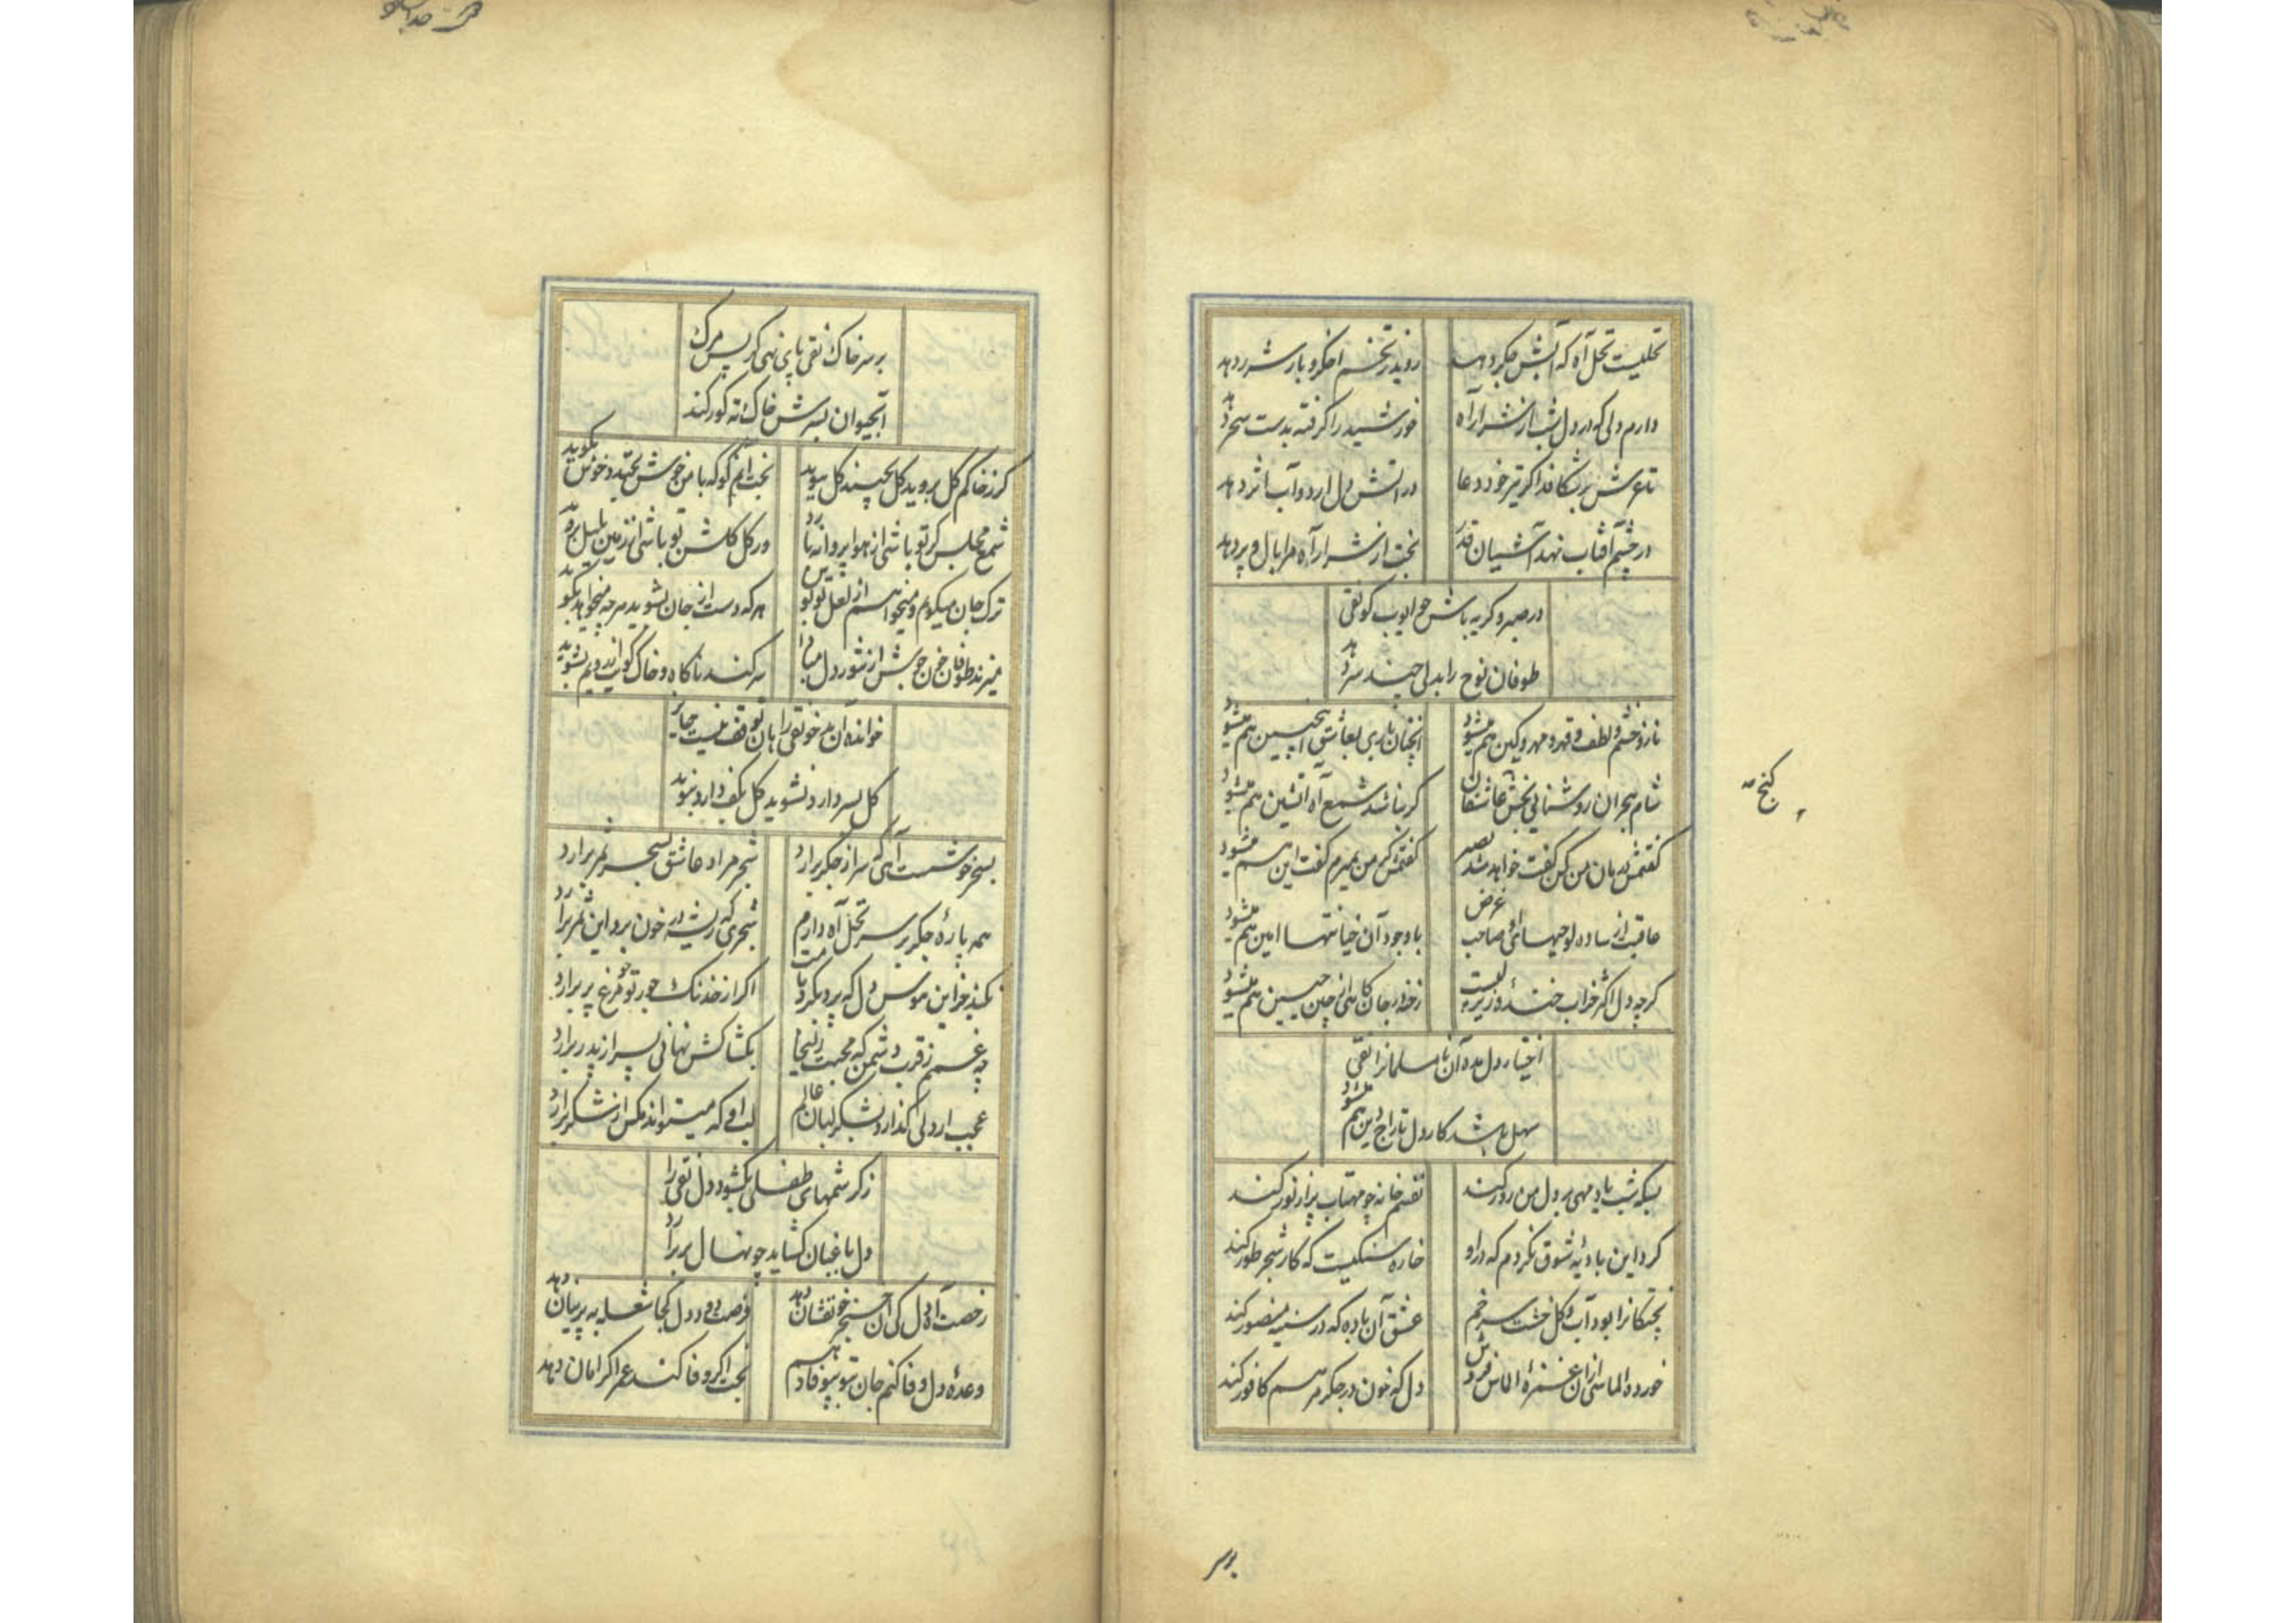 نخلیست نخل آه که آتش جکر دهد
روید ز تخم اخکر و بار شرر دهد
دارم دلی که در دل شب از شرار آه
خورشید را کرفته بدست سحر دهد
تا عرش بر شکافد اکر تیر خود دعا
در آتش دل ارد و آب اثر دهد
در چشم آفتاب نهد آشیان قدر
بخت ار شرار آه مرا بال و پر دهد
در صبر و کریه باش جو ایوب کو تقی
طوفان نوح را بدلی چند سر دهد
ناز و خشم و لطف و قهر و مهر و کین هم میشود
آنچنان یاری بعاشق اینچنین هم میشود
شام هجران روشنائی بخش عاشقان
کر نباشد شمع آه آتشین هم میشود
کفتمش درمان من کن کفت خواهد شد بصبر
کفتمش کر من بمیرم کفت این هم میشود
عاقبت از ساده لوحیهای او صاحب غرض
با وجود آن خیانتها امین هم میشود
کرچه دل اکثر خراب خندهٔ زیر لبیست
رخنه در جان کاهی از چین جبین هم میشود
اختیار دل مده آن نامسلمانرا تقی
سهل باشد کار دل تاراج دین هم میشود
بسکه شب یاد مهی بر دل من زور کند
نفسم خانه چو مهتاب پر از نور کند
کرد این بادیهٔ شوق نکردم که در او
خاره سنکیست که کار شجر طور کند
پختکانرا بود آب و کل خشت سر خم
عشق آن باده که در سینه منصور کند
خورده الماسی ازان غمزهٔ الماس فروش
دل که خون در جکر مرهم کافور کند
کنج
بر سر
بر سر خاک تقی پای نهی کر پس مرک
آبحیوان بسرش خاک ته کور کند
کر ز خاکم کل بروید کل بچیند کل ببوید
بخت انم کو که با من خوش بخندد خوش بکوید
شمع مجلس کر تو باشی از هوا پروانه بارد
ور کل کلشن تو باشی از زمین بلبل بروید
ترک جان میکویم و میخواهم از لعل تو بوس
هر که دست از جان بشوید هر چه میخواهد بکوید
میزند طوفان خون جوش از تنور دل مبادا
سر کند ناکاه و خاک کوی از رویم بشوید
خوانده آن مه خو تقی را هان توقف نیست جایز
کل بسر دارد نشوید کل بکف دارد نبوید
بسحر خوشست آهی که سر از جکر برارد
شجر مراد عاشق بسحر ثمر برارد
همه پارهٔ جکر بر سر نخل آه دارم
شجری که ریشه در خون برد این ثمر برارد
نکند جز این هوس دل که پرد بکرد بامت
اکر از خدنک جور تو جو مرغ پر برارد
چه غمم ز قرب دشمن که محبت زلیخا
بکشاکش نهانی پسر از پدر برارد
عجب ار دلی کذارد بشکر لبان عالم
لب او که میتواند مکس از شکر برارد
ز کرشمهای طفلی بکشود دل تقی را
دل باغبان کشاید چو نهال بر برارد
رخصت آه دل کی آن خنجر خونفشان دهد
فرصت دود دل کجا شعله به پرنیان دهد
وعدهٔ دل وفا کنم جان بتو بیوفا دهم
بخت اکر وفا کند عمر اکر امان دهد